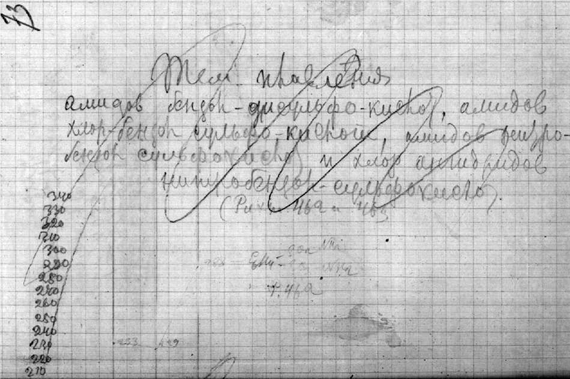 73
Тем. плавления
амидов бензол-дисульфо-кислот, амидов
хлор-бензол сульфо-кислот, амидов нитро-
бензол сульфокислот и хлор ангидридов
нитробензол-сульфокислот.
340
330
320
310
300
290
280
270
260
250
240
230
220
210